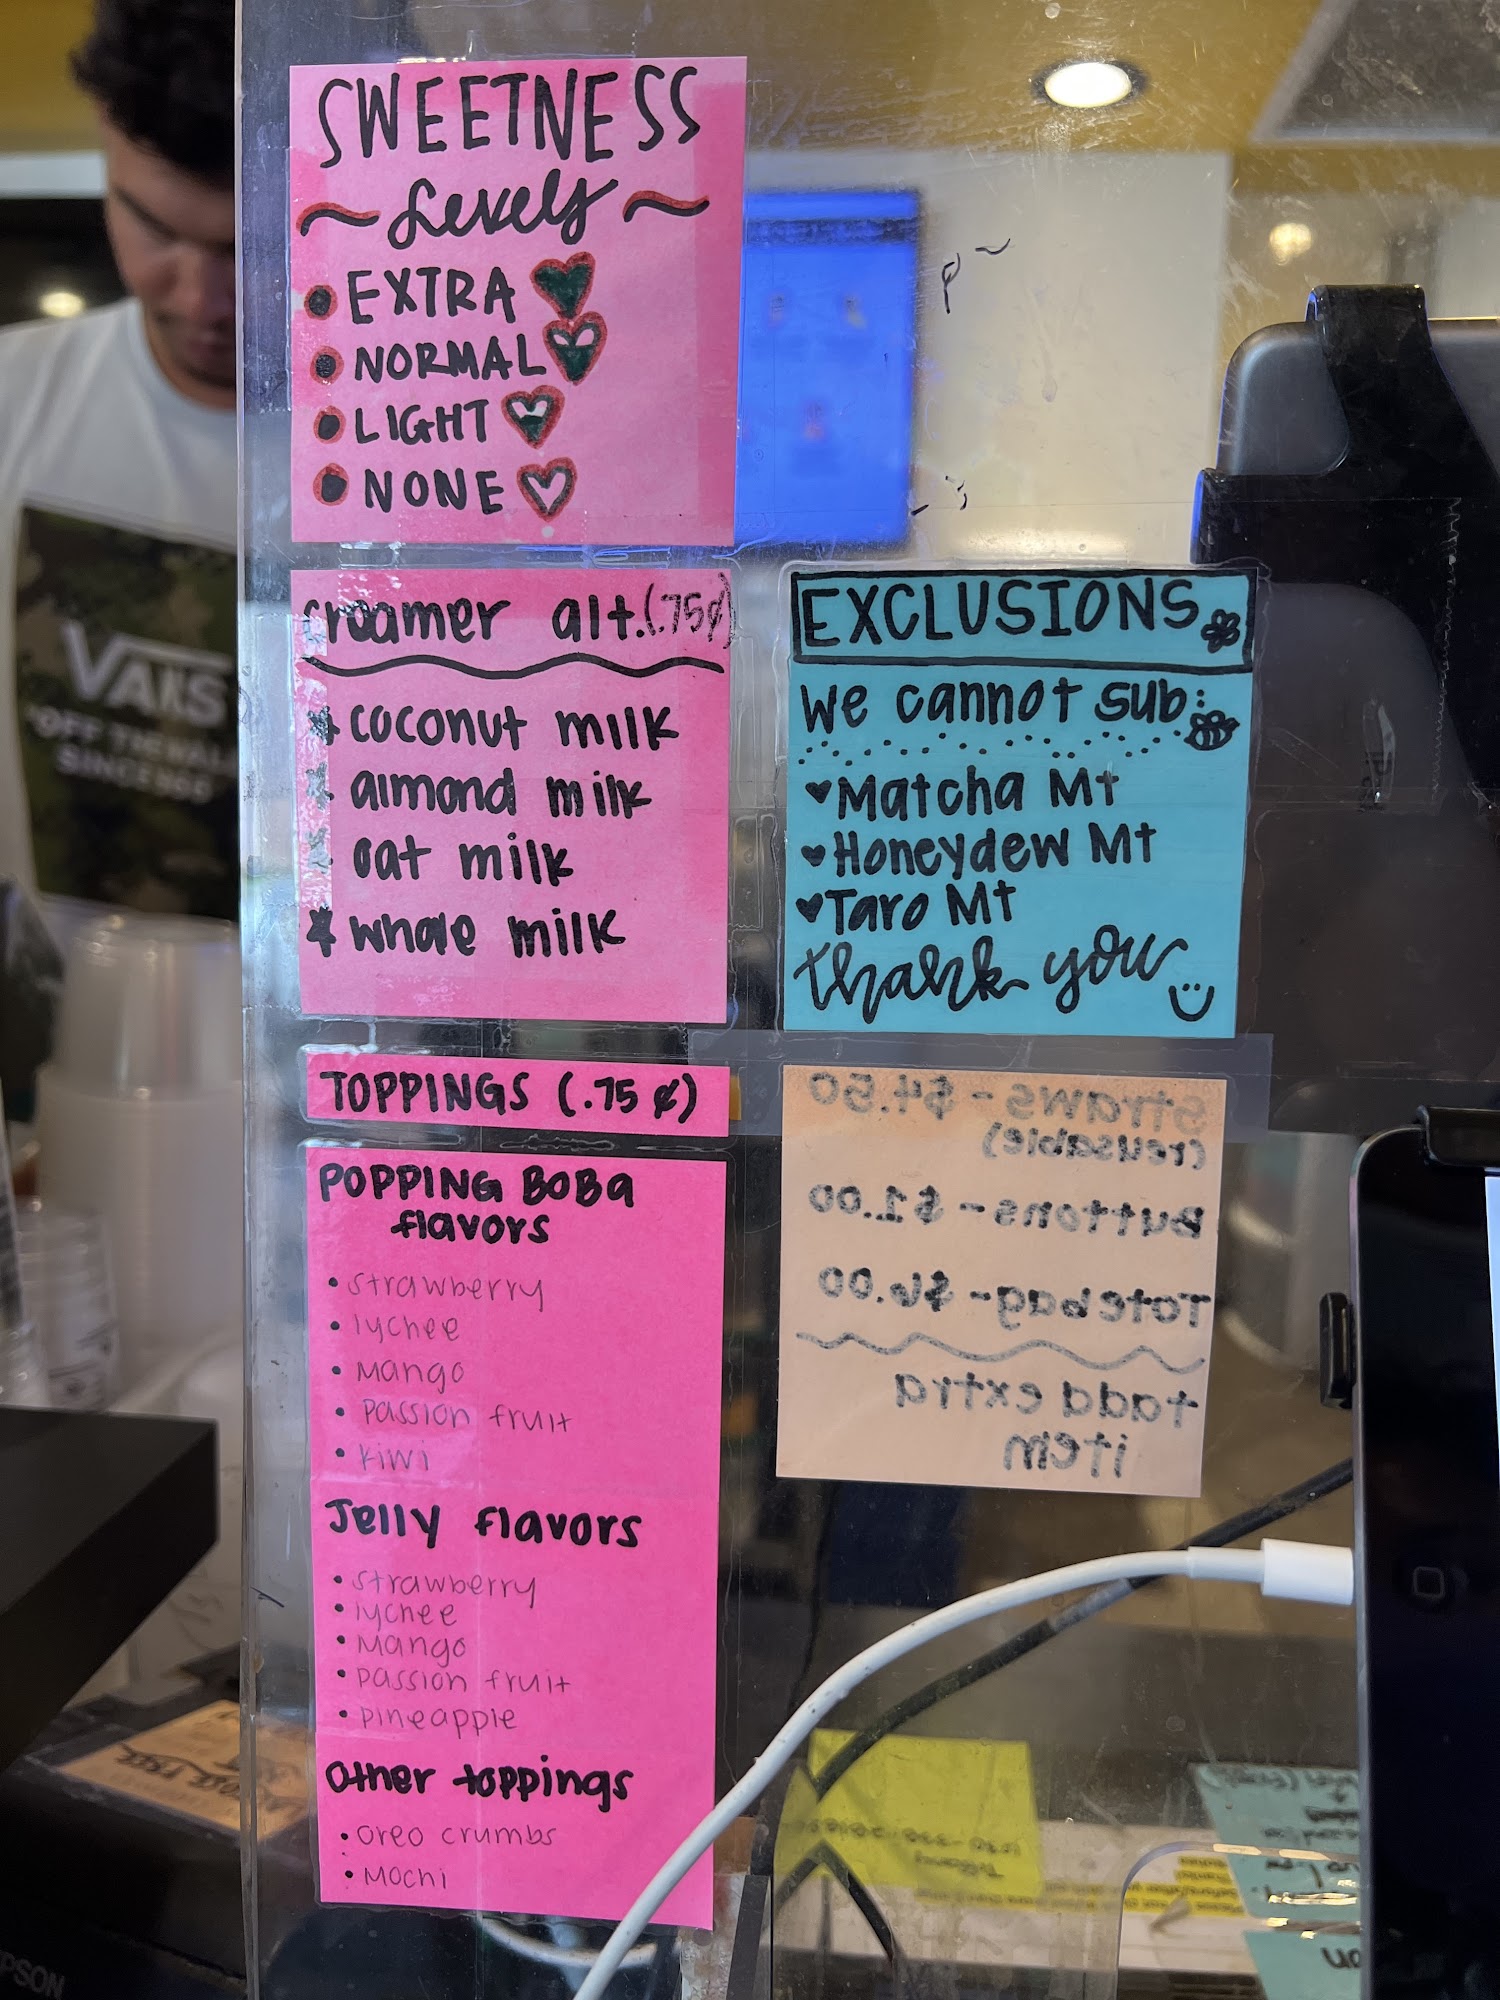 SWEETNESS
~ Levels ~
• EXTRA
• NORMAL
• LIGHT
• NONE
creamer alt. (.75¢)
coconut milk
almond milk
oat milk
whole milk
EXCLUSIONS
we cannot sub:
♥ Matcha Mt
♥ Honeydew Mt
♥ Taro Mt
thank you
TOPPINGS (.75 ¢)
POPPING BOBa
flavors
• strawberry
• lychee
• Mango
• Passion fruit
• kiwi
Jelly flavors
• strawberry
• lychee
• Mango
• passion fruit
• pineapple
Other toppings
• Oreo crumbs
• Mochi
straws - $4.50
(reusable)
Buttons - $1.00
Totebag - $6.00
+add extra
item
VANS
"OFF THE WALL
SINCE 66"
PSON